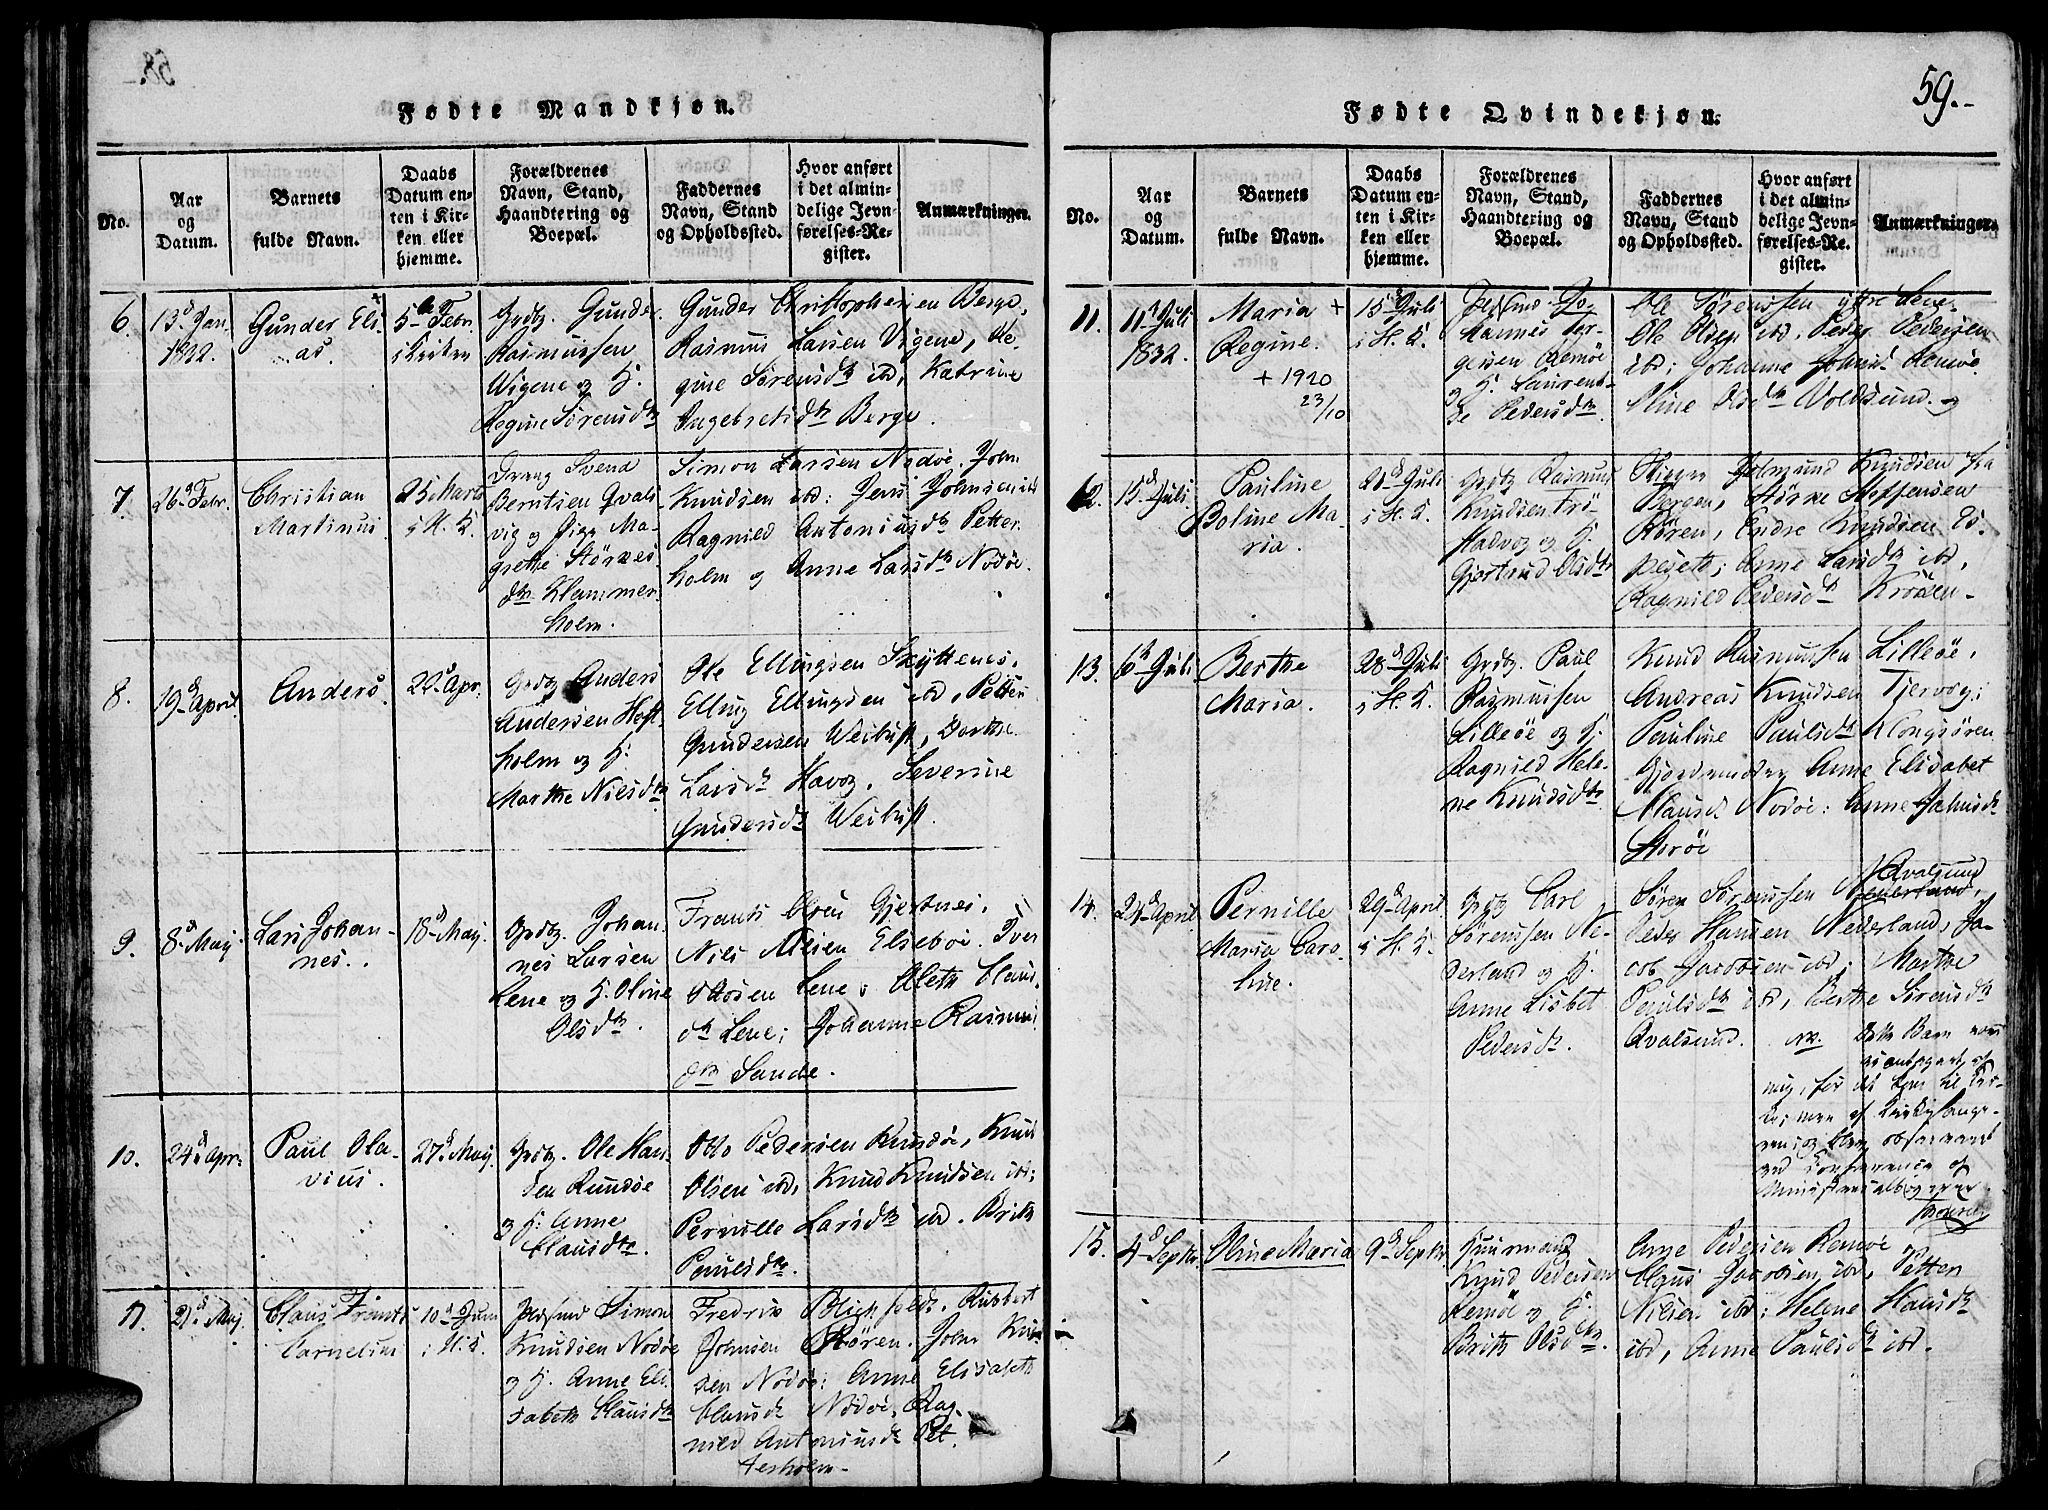 Fødte Mandkjøn.
No.
Aar
og
Datum.
Barnets
fulde Navn.
Daabs
Datum en-
ten i Kir-
ken eller
hjemme.
Forældrenes
Navn, Stand,
Haandtering og
Boepæl.
Faddernes
Navn, Stand
og Opholdssted.
Hvor anført
i det almin-
delige Jevn-
førelses-Re-
gister.
Anmærkninger.
6.
13d Jan.
1832.
Gunder Eli-
as.
5te Febr.
i Kirken
Grdbr. Gunder
Rasmussen
Wigene og H.
Regine Sørensdtr
Gunder Christophersen Berge,
Rasmus Larsen Vigene, Re-
gine Sørensdtr ibd, Katrine
Ingebretsdtr Berge.
7.
26d Febr.
Christian
Martinus
25 Marts
i H. K.
Drang Svend
Berntsen Qvals-
vig og Pige Ma-
grethe Størkes
dtr Klammer-
holm.
Simon Larsen Nodøe. John
Knudsen ibd: Jens Johnsen ibd
Ragnild Antoniusdtr Petter
holm og Anne Larsdtr Nodøe.
8.
19d April
Anders
22d Apr.
Grdbr. Anders
Andersen Hest-
holm og H.
Marthe Nilsdtr
Ole Ellingsen Skyttenes.
Elling Ellingsen ibd, Petter
Gundersen Weibust, Dorthe
Larsdtr Havog, Severine
Gundersdtr Weibust.
9.
8d May
Lars Johan-
nes.
18d May.
Grdbr. Johan-
nes Larsen
Lene og H. Oline
Olsdtr.
Frants Olsen Gjertnes.
Nils Nilsen Elsebøe. Iver
Lene; Aleth Claus-
dtr Lene; Johanne Rasmus
dtr Sande.
10.
24d Apr.
Paul Ola-
vius.
27d May.
Grdbr. Ole Han-
sen Rundøe
og H. Anne
Clausdtr.
Otto Pedersen Rundøe, Knud
Olsen ibd, Knud Knudsen ibd;
Pernille Larsdtr ibd. Brith
Poulsdtr.
11.
21d May.
Claus Frants
Cornelius
10d Juni
i H. K.
Plsmd Simon
Knudsen Nodøe
og H. Anne Eli-
sabeth Clausdtr
Fredrik Blichfeldt. Rubbert
Johnsen Røren. John Knud-
sen Nodøe; Anne Elisabeth
Clausdtr Nodøe, Rag-
nild Antoniusdtr Pet-
terholm-
59.-
Fødte Qvindekjøn.
No.
Aar
og
Datum.
Barnets
fulde Navn.
Daabs
Datum en-
ten i Kir-
ken eller
hjemme.
Forældrenes
Navn, Stand,
Haandtering og
Boepæl.
Faddernes
Navn, Stand
og Opholdssted.
Hvor anført
i det almin-
delige Jevn-
førelses-Re-
gister.
Anmærkninger.
11.
11d Juli
1832.
Maria +
Regine.
+ 1920
23/10
15d Juli
i H. K.
Plsmd Jo-
hannes Jør-
gensen Remøe
og H. Laurent-
se Pedersdtr.
Ole Sørenssen ytre Lene-
Ole Olsen ibd. Peder Pedersen
ibd; Johanne Johnsd. Remøe.
Oline Olsdtr Voldsund. og
12.
15d Juli.
Pauline
Boline Ma-
ria.
28d Juli
i H. K.
Grdbr Rasmus
Knudsen Frø-
stadvog og H.
Gjertrud Olsdtr
Skipper Gulmund Knudsen fra
Bergen, Størke Steffensen
Røren, Endre Knudsen Es-
peseth; Anne Larsdtr ibd,
Ragnild Pedersdtr Krøken-
13.
6te Juli
Berthe
Maria.
28d Juli
i H. K.
Grdbr. Paul
Rasmussen
Lilleøe og H.
Ragnild Hele-
ne Knudsdtr.
Knud Rasmussen Lilleøe,
Andreas Knudsen Tjervog;
Pauline Paulsdtr Klongsøren
Gjordemoder Anne Elisabet
Klausd Nodøe: Anne Johnsdr
Storøe
14.
24d April
Pernille
Maria Caro-
line.
29d April
i H. K.
Grdbr Carl
Sørenssen Ne-
derland og H.
Anne Lisbet
Pedersdtr.
Søren Sørenssen Nederland, Qvalsund
Peder Hansen Nederland, Ja-
cob Jacobsen ibd; Marthe
Paulsdtr ibd, Berthe Sørensdtr
Qvalsund. NB. Dette Barn
15.
4d Septbr.
Oline Maria
9d Septbr.
Huusmand
Knud Pedersen
Remøe og H.
Brith Olsdtr.
Ange Pedersen Remøe
Claus Jacobsen ibd, Petter
Nilsen ibd; Helene Hansdtr
ibd, Anne Paulsdtr ibd.